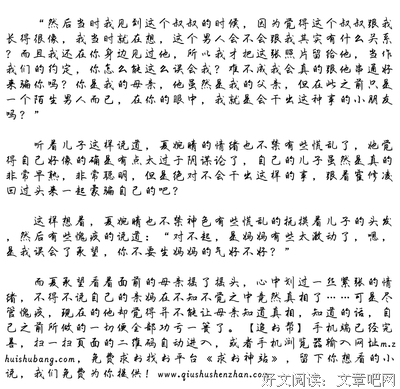 “然后当时我见到这个叔叔的时候，因为觉得这个叔叔跟我
长得很像，我当时就在想，这个男人会不会跟我其实有什么关系
？而且我还在你身边见过他，所以我才把这张照片留给他，当作
我们的约定，你怎么能这么误会我？难不成我会真的跟他串通好
来骗你吗？你是我的母亲，他虽然是我的父亲，但在此之前只是
一个陌生男人而已，在你的眼中，我就是会干出这种事的小朋友
吗？”
听着儿子这样说道，夏婉晴的情绪也不禁有些慌乱了，她觉
得自己好像的确是有点太过于阴谋论了，自己的儿子虽然是真的
非常早熟，非常聪明，但是绝对不会干出这样的事，跟着霍修凌
回过头来一起蒙骗自己的吧？
这样想着，夏婉晴也不禁神色有些慌乱的抚摸着儿子的头发
，然后有些愧疚的说道：“对不起，是妈妈有些太激动了，嗯，
是我误会了承望，你不要生妈妈的气好不好？”
而夏承望看着面前的母亲摸了摸头，心中划过一丝紧张的情
绪，不得不说自己的亲妈在不知不觉之中竟然真相了……可是尽
管愧疚，现在的他却觉得并不能让母亲知道真相，知道的话，自
己之前所做的一切便全部功亏一篑了。【追书帮】手机端已经完
善，扫一扫页面的二维码自动进入，或者手机浏览器输入网址m.z
huishubang.com，免费求书找书平台《求书神站》，留下你想看的小
说，我们免费为你提供！www.qiushushenzhan.com
好文阅读：文章吧网